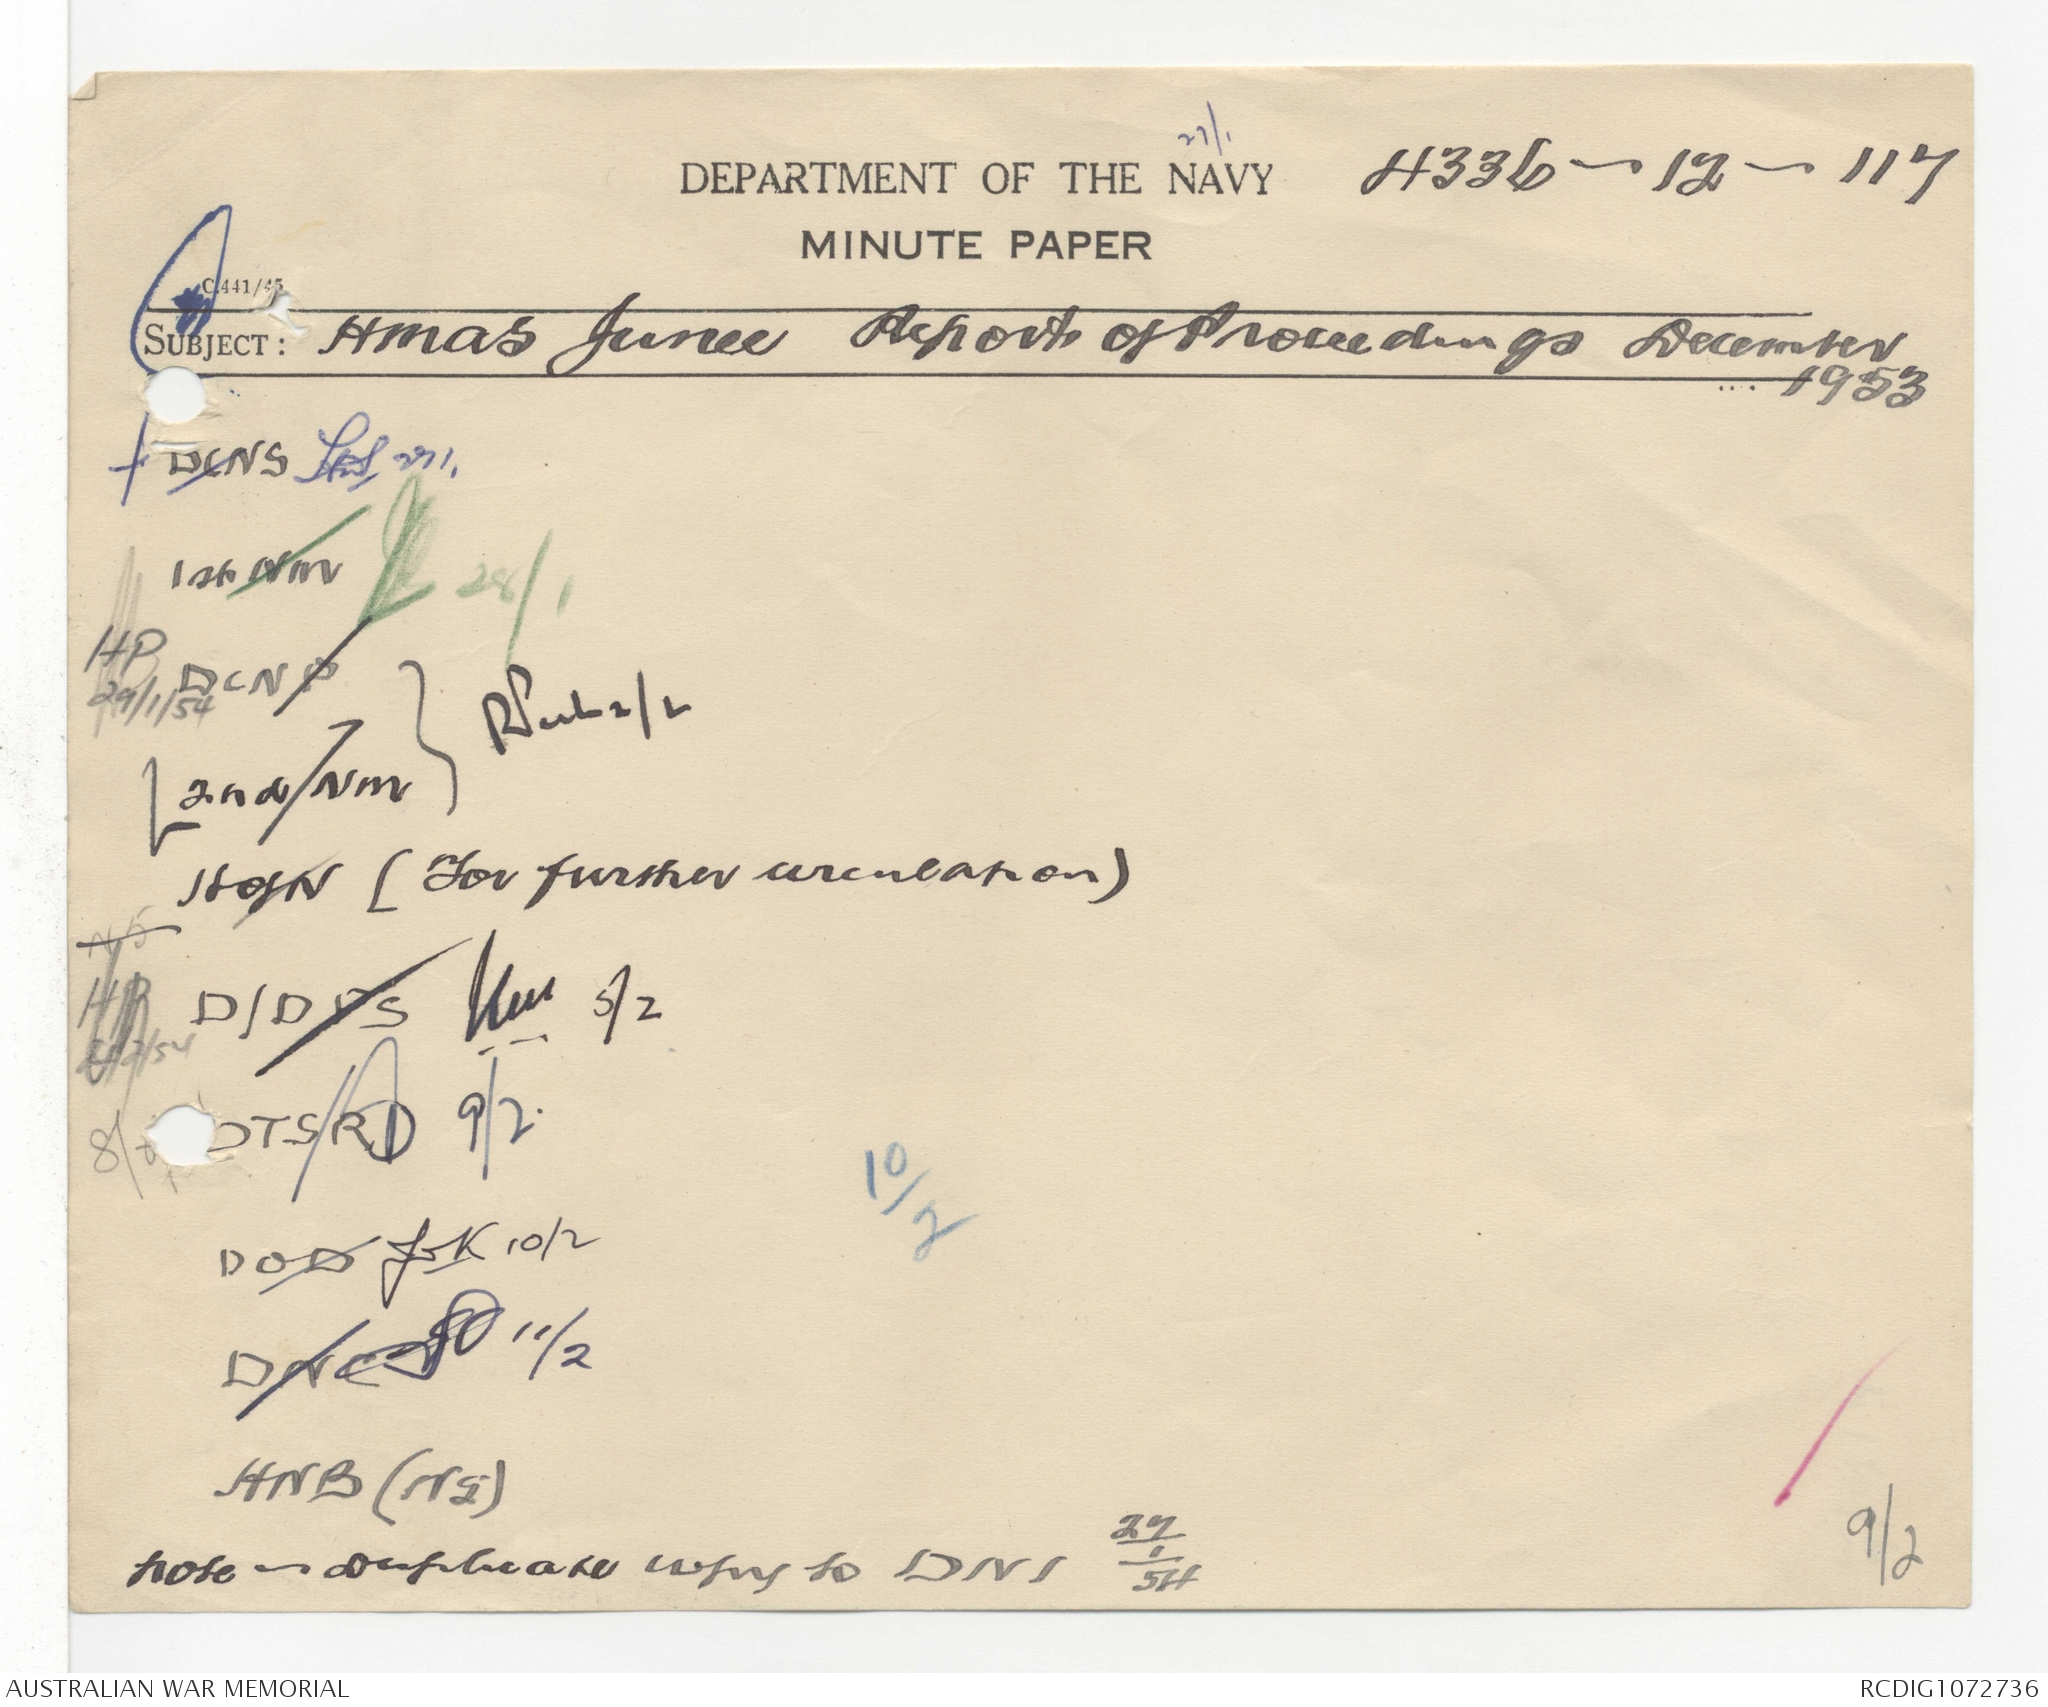 27/1
DEPARTMENT OF THE NAVY 4336-12-117
MINUTE PAPER
C.441/45
SUBJECT: HMAS Junee Reports of Proceedings December
1953
DCNS 27/1.
1st NM 28/1
HP
29/1/54
DCNP
2nd NM 2/2
HofN (For further circulation)
D/DPS 5/2
DTSR 9/2.
10/2
DOD 10/2
DNC 11/2
HNB (NSi)
note - duplicate copy to DNI 27/1/54
9/2
AUSTRALIAN WAR MEMORIAL RCDIG1072736